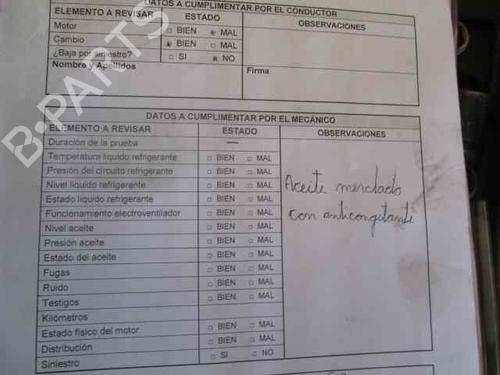 DATOS A CUMPLIMENTAR POR EL CONDUCTOR
ELEMENTO A REVISAR ESTADO OBSERVACIONES
Motor BIEN MAL
Cambio BIEN MAL
¿Baja por siniestro? SI NO
Nombre y Apellidos Firma
DATOS A CUMPLIMENTAR POR EL MECÁNICO
ELEMENTO A REVISAR ESTADO OBSERVACIONES
Duración de la prueba —
Temperatura líquido refrigerante BIEN MAL
Presión del circuito refrigerante BIEN MAL
Nivel líquido refrigerante BIEN MAL
Estado líquido refrigerante BIEN MAL
Funcionamiento electroventilador BIEN MAL
Nivel aceite BIEN MAL
Presión aceite BIEN MAL
Estado del aceite BIEN MAL
Fugas BIEN MAL
Ruido BIEN MAL
Testigos BIEN MAL
Kilómetros
Estado físico del motor BIEN MAL
Distribución BIEN MAL
Siniestro SI NO
Aceite mezclado
con anticongelante
B-PARTS